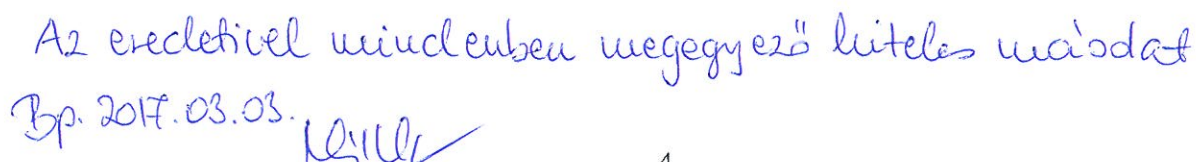 Az eredetivel mindenben megegyező hiteles másolat
Bp. 2017.03.03.